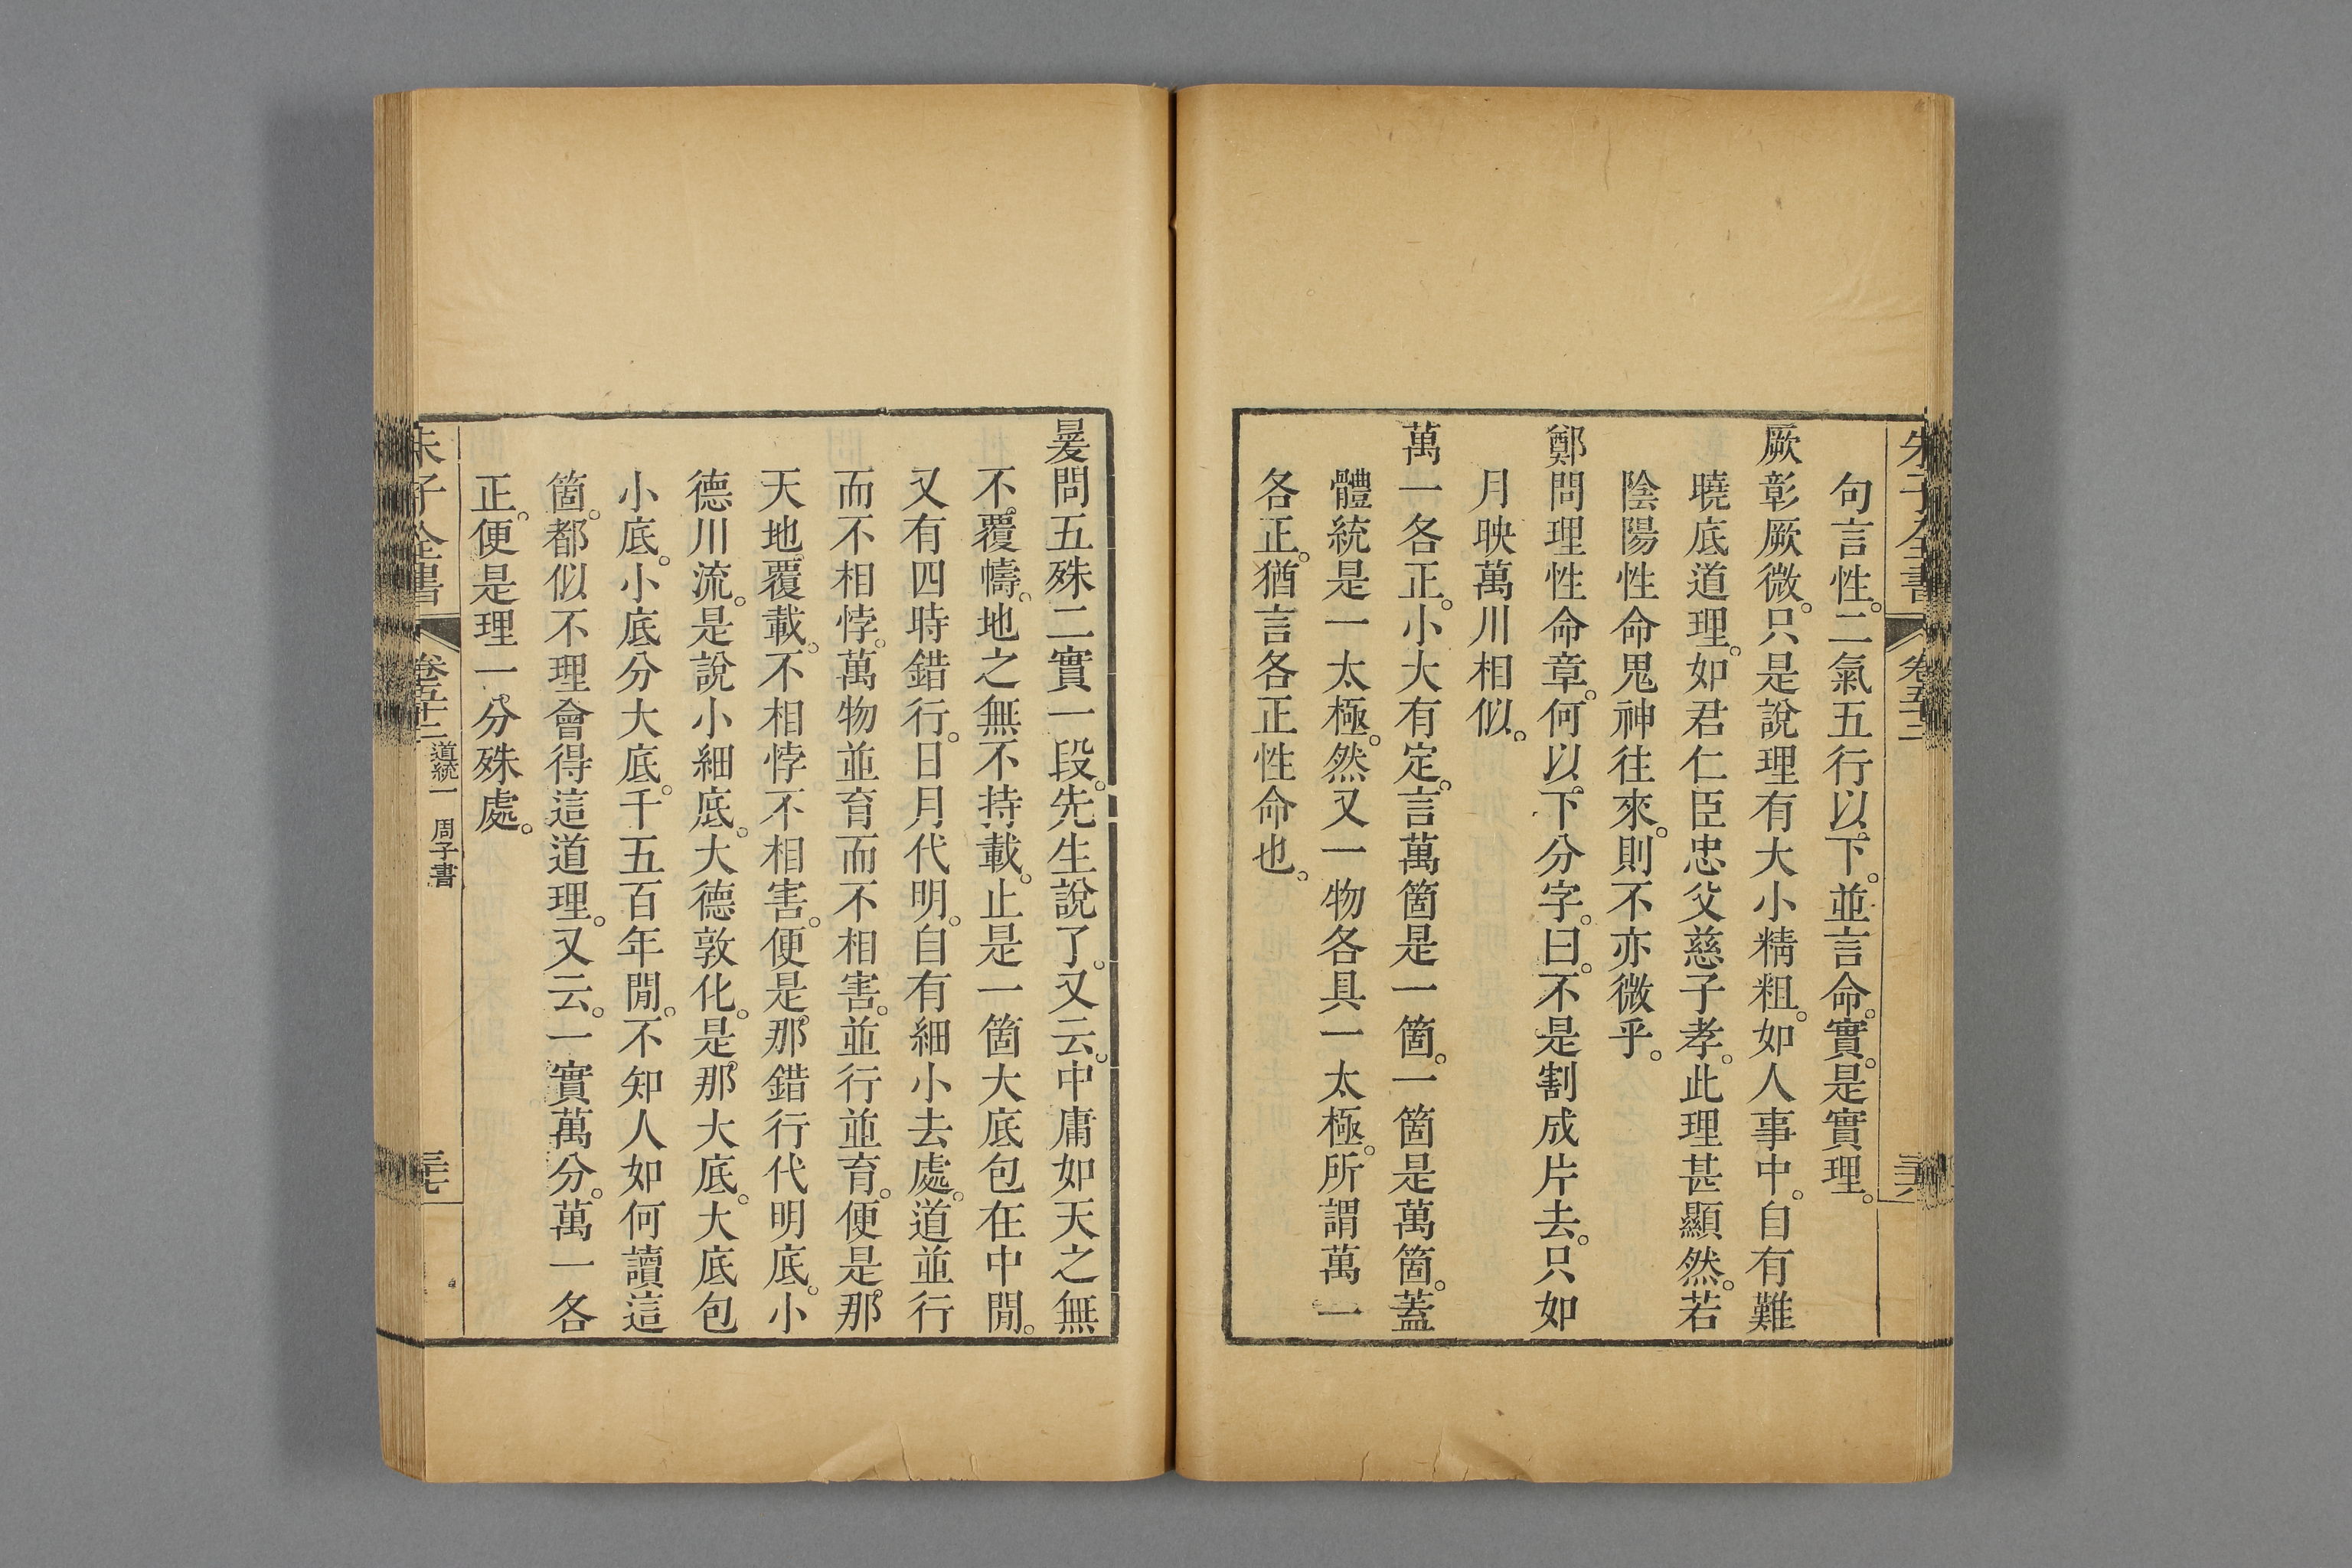 朱子全書 卷五十二 三六
句言性。二氣五行以下。並言命。實。是實理。
厥彰厥微。只是說理有大小精粗。如人事中。自有難
曉底道理。如君仁臣忠父慈子孝。此理甚顯然。若
陰陽性命鬼神往來。則不亦微乎。
鄭問理性命章。何以下分字。曰。不是割成片去。只如
月映萬川相似。
萬一各正。小大有定。言萬箇是一箇。一箇是萬箇。蓋
體統是一太極。然又一物各具一太極。所謂萬一
各正。猶言各正性命也。
㬊問五殊二實一段。先生說了。又云。中庸如天之無
不覆幬。地之無不持載。止是一箇大底包在中閒。
又有四時錯行。日月代明。自有細小去處。道並行
而不相悖。萬物並育而不相害。並行並育。便是那
天地覆載。不相悖不相害。便是那錯行代明底。小
德川流。是說小細底。大德敦化。是那大底。大底包
小底。小底分大底。千五百年閒。不知人如何讀這
箇。都似不理會得這道理。又云。一實萬分。萬一各
正。便是理一分殊處。
朱子全書 卷五十二 道統一 周子書 三七